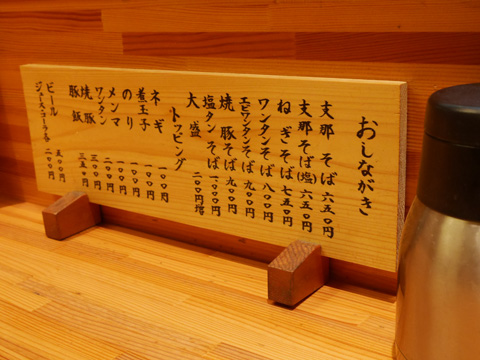 おしながき
支那そば 六五〇円
支那そば(塩) 六五〇円
ねぎそば 七五〇円
ワンタンそば 八〇〇円
エビワンタンそば 九〇〇円
焼豚そば 九〇〇円
塩タンそば 一〇〇〇円
大盛 一〇〇円増
トッピング
ネギ 一〇〇円
煮玉子 一〇〇円
のり 一〇〇円
メンマ 一〇〇円
ワンタン 二〇〇円
焼豚 三〇〇円
豚飯 三五〇円
ビール 五〇〇円
ジュース・コーラ 二〇〇円